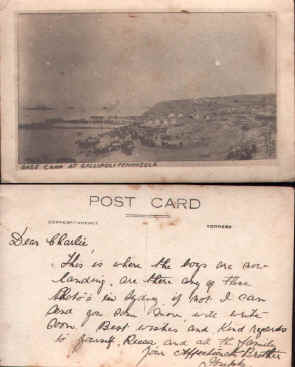 BASE CAMP AT GALLIPOLI PENINSULA
POST CARD
CORRESPONDENCE
ADDRESS
Dear Charlie
This is where the boys are now
landing. are there any of these
Photo's in Sydney, if not I can
send you some more. will write
soon. Best wishes and Kind regards
to yourself, and all the family
Your Affectionate Brother